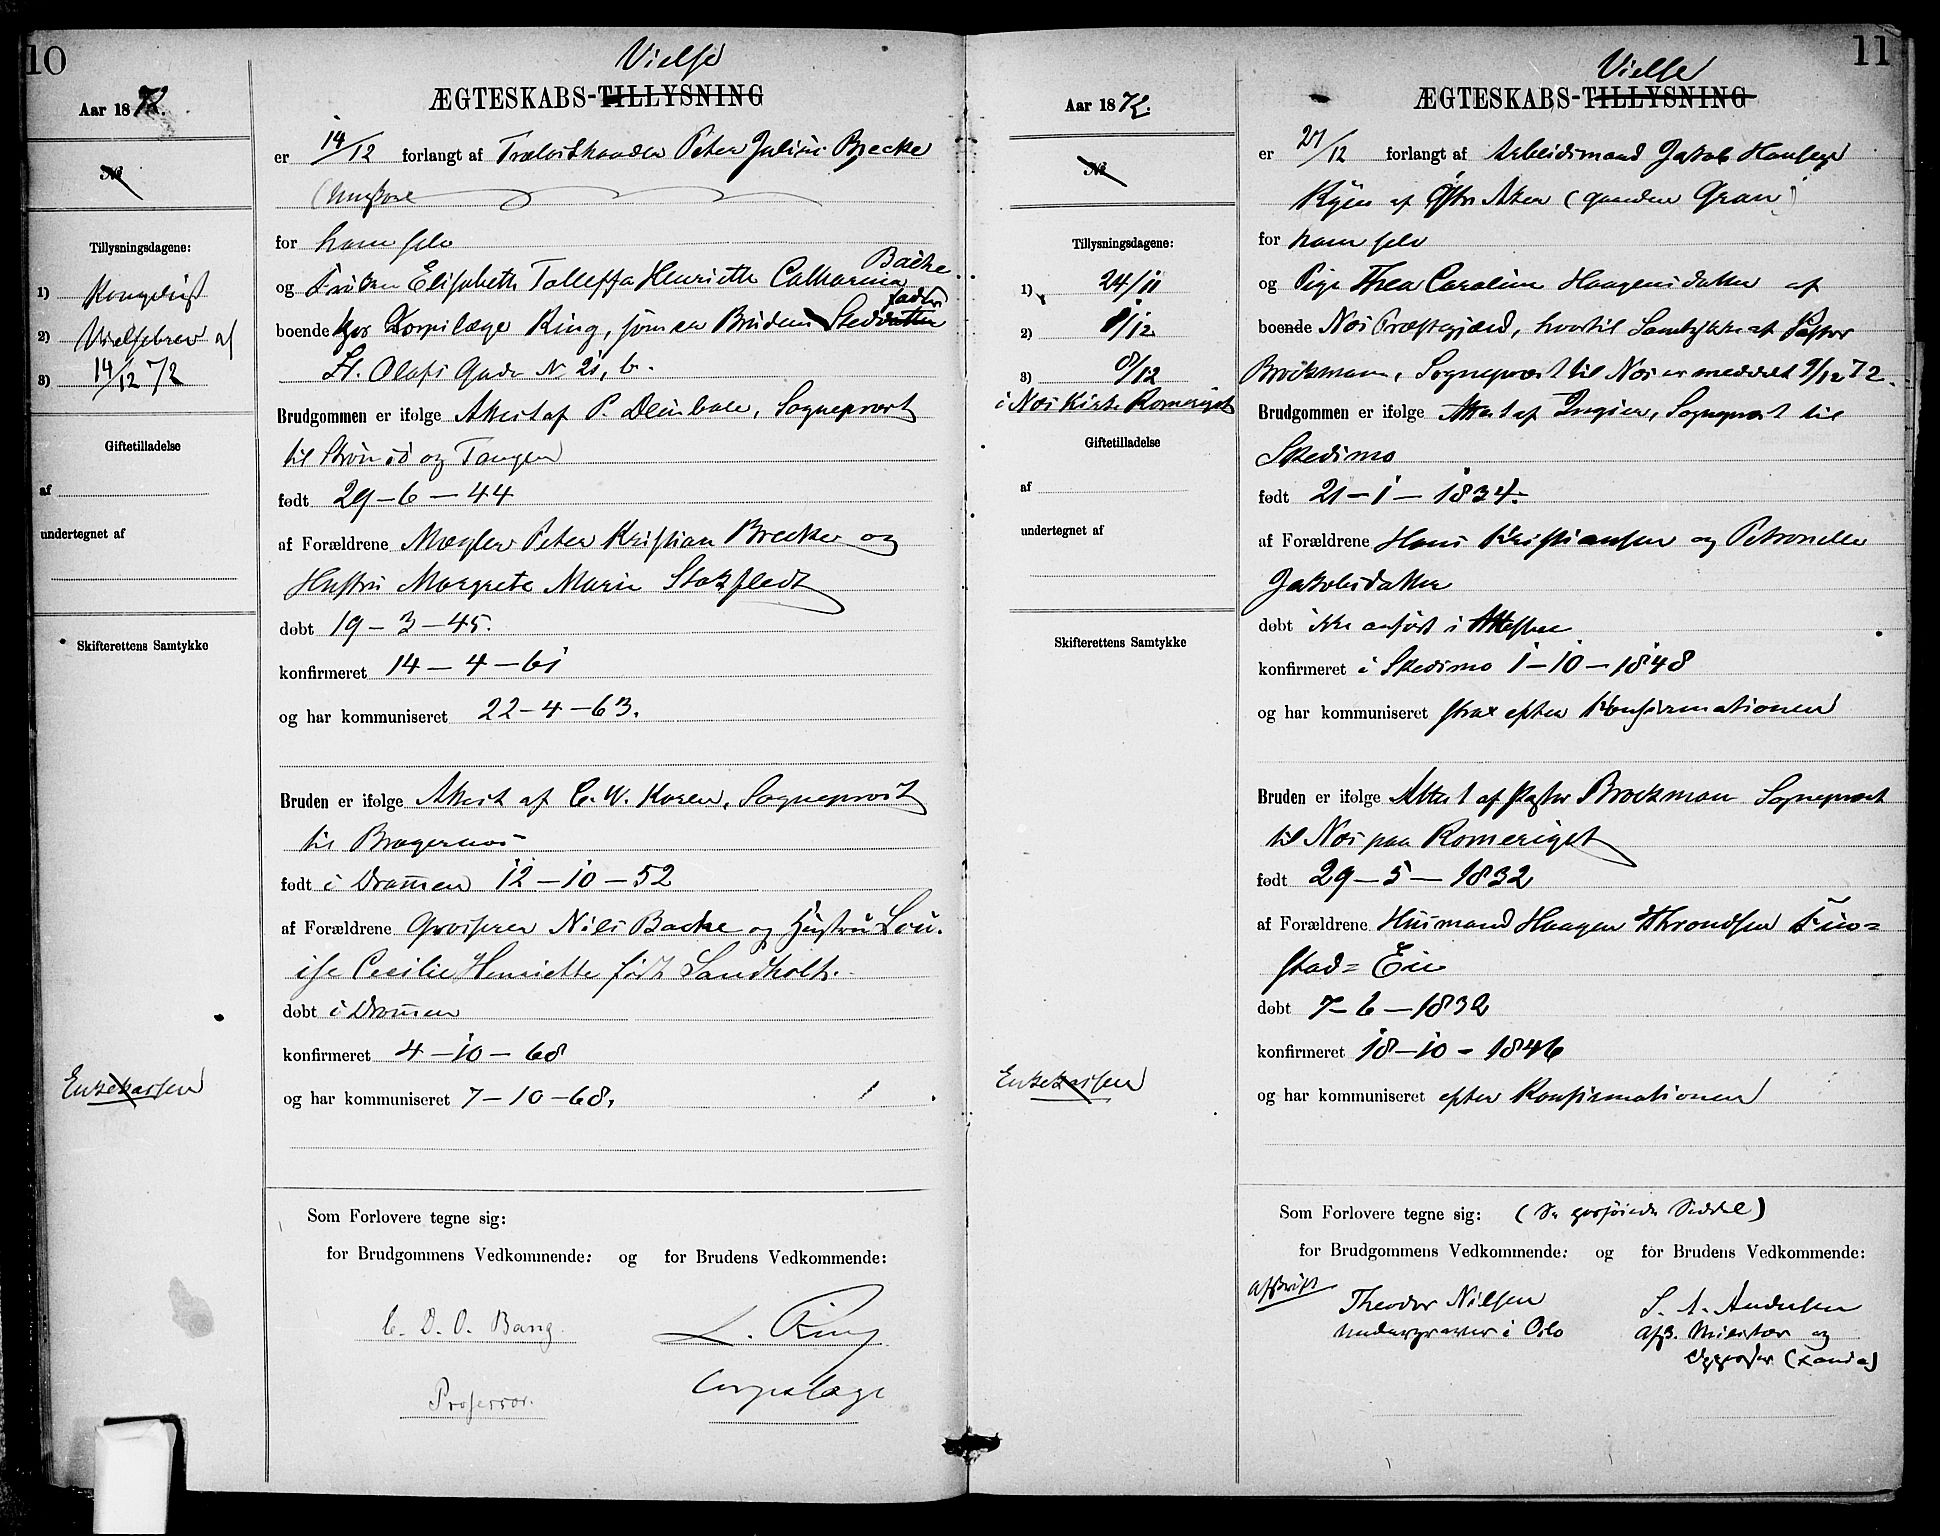 10
Aar 1872.
No
Tillysningsdagene:
1) Kongeligt
2) Vielsebrev af
3) 14/12 72
Giftetilladelse
af
undertegnet af
Skifterettens Samtykke
Enkekassen
Vielse
ÆGTESKABS-TILLYSNING
er 14/12 forlangt af Trælasthandler Peter Julius Brecke
(Ungkarl
for ham selv
og Frøken Elisabeth Tolleffa Henriette Catharina Backe
boende hos Korpslæge Ring, som er Brudens Stedfader
St. Olafs Gade N 21, b.
Brudgommen er ifølge Attest af P. Deinboll, Sogneprest
til Strømsø og Tangen
født 29-6-44
af Forældrene Mægler Peter Kristian Brecke og
Hustru Margrete Marie Stokfledt
døbt 19-3-45.
konfirmeret 14-4-61
og har kommuniseret 22-4-63.
Bruden er ifølge Attest af C. W. Koren, Sogneprest
til Bragernes
født i Drammen 12-10-52
af Forældrene Grosserer Nils Backe og Hustru Lou-
ise Cecilie Henriette født Sandholt.
døbt i Drammen
konfirmeret 4-10-68
og har kommuniseret 7-10-68.
Som Forlovere tegne sig:
for Brudgommens Vedkommende: og for Brudens Vedkommende:
C. D. O. Bang L. Ring
Professor. Corpslæge
11
Aar 1872.
No
Tillysningsdagene:
1) 24/11
2) 1/12
3) 8/12
i Næs Kirke Romeriget
Giftetilladelse
af
undertegnet af
Skifterettens Samtykke
Enkekassen
Vielse
ÆGTESKABS-TILLYSNING
er 27/12 forlangt af Arbeidsmand Jakob Hansen
af Østre Aker
for ham selv
og Pige Thea Caroline Haagensdatter af
boende Næs Præstegjæld, hvortil Samtykke af Pastor
Brockmann, Sogneprest til Næs er meddelt 9/12 72.
Brudgommen er ifølge Attest af Ingier, Sogneprest til
Skedsmo
født 21-1-1834.
af Forældrene Hans Kristiansen og Petronelle
Jakobsdatter
døbt ikke anført i Attesten
konfirmeret i Skedsmo 1-10-1848
og har kommuniseret strax efter Konfirmationen
Bruden er ifølge Attest af Pastor Brockman Sogneprest
til Næs paa Romeriget
født 29-5-1832
af Forældrene Husmand Haagen Throndsen
stad= Eie
døbt 7-6-1832
konfirmeret 18-10-1846
og har kommuniseret efter Konfirmationen
Som Forlovere tegne sig: (Se Seddel)
for Brudgommens Vedkommende: og for Brudens Vedkommende:
Afskrift
Theodor Nilsen S. A. Andersen
Undergraver i Oslo Afsk. Militær og